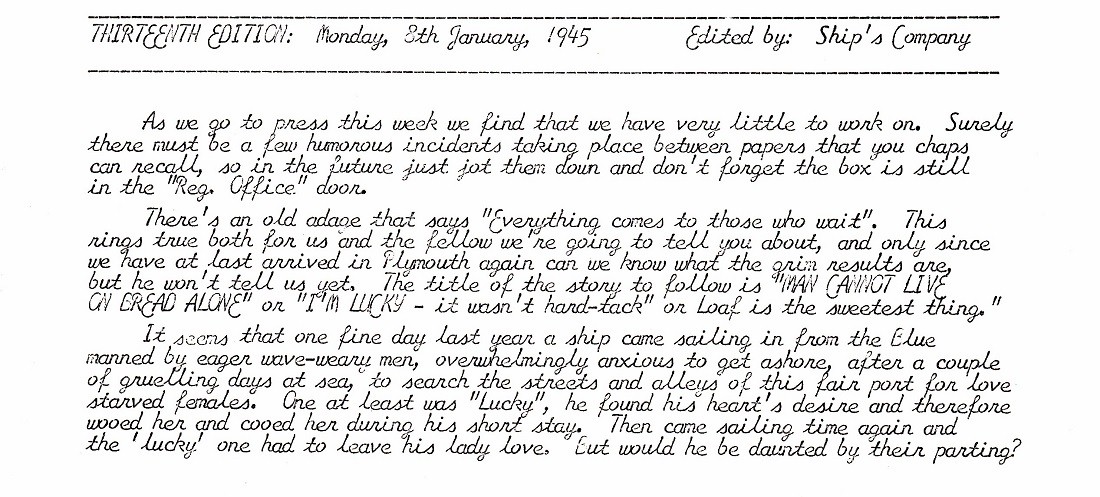 THIRTEENTH EDITION: Monday, 8th January, 1945 Edited by: Ship's Company
As we go to press this week we find that we have very little to work on. Surely
there must be a few humorous incidents taking place between papers that you chaps
can recall, so in the future just jot them down and don't forget the box is still
in the "Reg. Office" door.
There's an old adage that says "Everything comes to those who wait". This
rings true both for us and the fellow we're going to tell you about, and only since
we have at last arrived in Plymouth again can we know what the grim results are,
but he won't tell us yet. The title of the story to follow is "MAN CANNOT LIVE
ON BREAD ALONE" or "I'M LUCKY - it wasn't hard-tack" or Loaf is the sweetest thing."
It seems that one fine day last year a ship came sailing in from the Blue
manned by eager wave-weary men, overwhelmingly anxious to get ashore, after a couple
of gruelling days at sea, to search the streets and alleys of this fair port for love
starved females. One at least was "Lucky", he found his heart's desire and therefore
wooed her and cooed her during his short stay. Then came sailing time again and
the 'lucky' one had to leave his lady love. But would he be daunted by their parting?